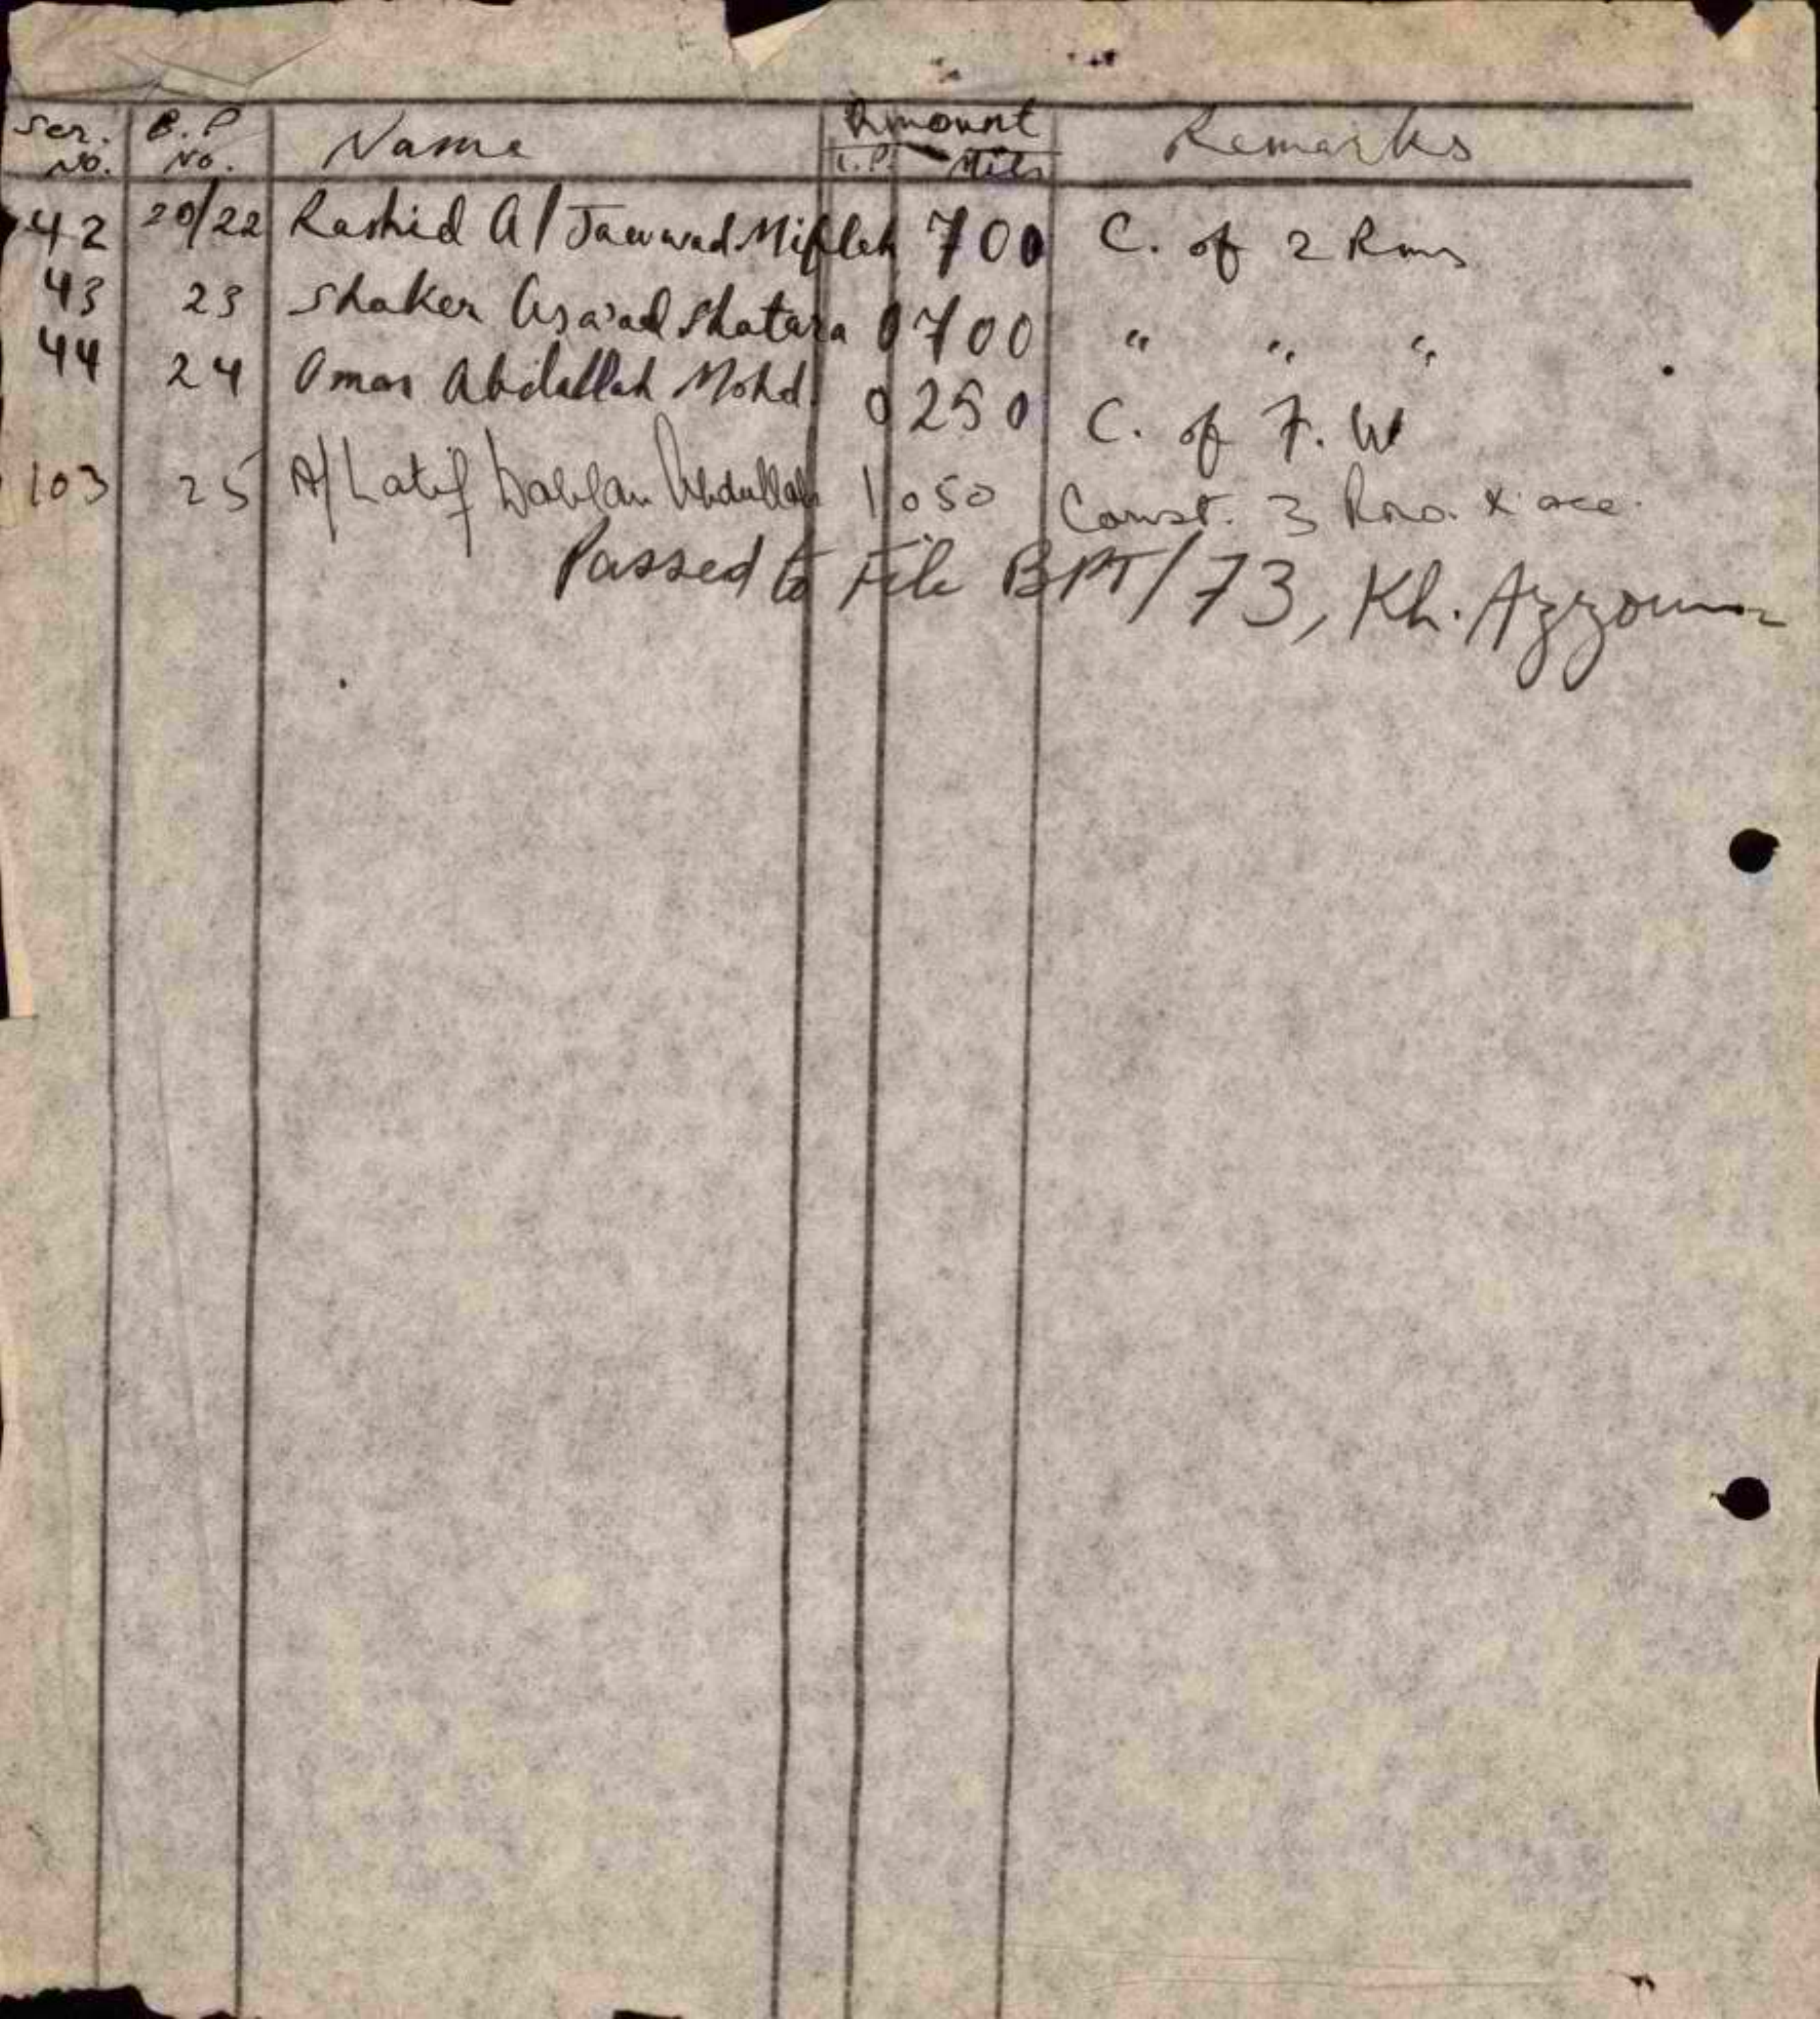 Ser. No. B.P No. Name Amount L.P. Mils Remarks
42 20/22 Rashid A/Jawwad Mifleh 700 C. of 2 Rms
43 23 Shaker Asa'ad Shatara 0 700 " " "
44 24 Omar Abdallah Mohd. 0 250 C. of F. W
103 25 A/Latif Abdullah 1 050 Const. 3 Rms. & acc.
Passed to File BPT/73, Kh. Azzoun